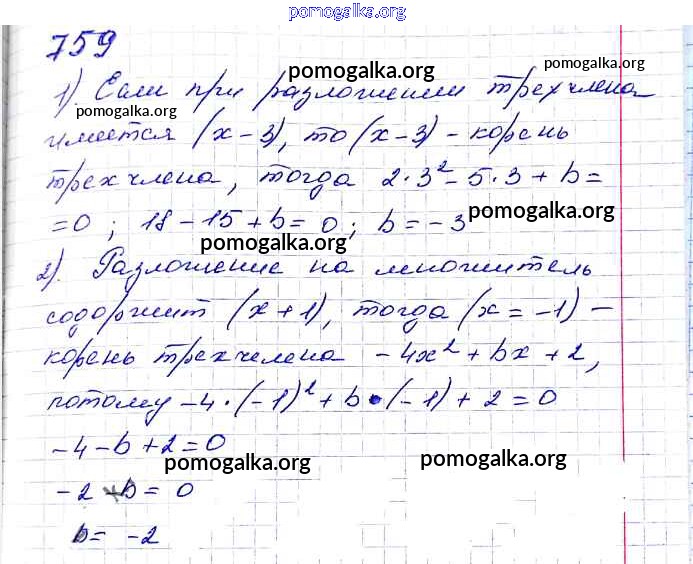 pomogalka.org
759
1). Если при разложении трехчлена
pomogalka.org pomogalka.org pomogalka.org
имеется (x-3), то (x-3) - корень
трехчлена, тогда 2·3²-5·3+b=
=0; 18-15+b=0; b=-3
pomogalka.org pomogalka.org
2). Разложение на множитель
содоржит (x+1), тогда (x=-1) -
корень трехчелена -4x²+bx+2,
потому -4·(-1)²+b·(-1)+2=0
-4-b+2=0
pomogalka.org pomogalka.org
-2-b=0
b=-2